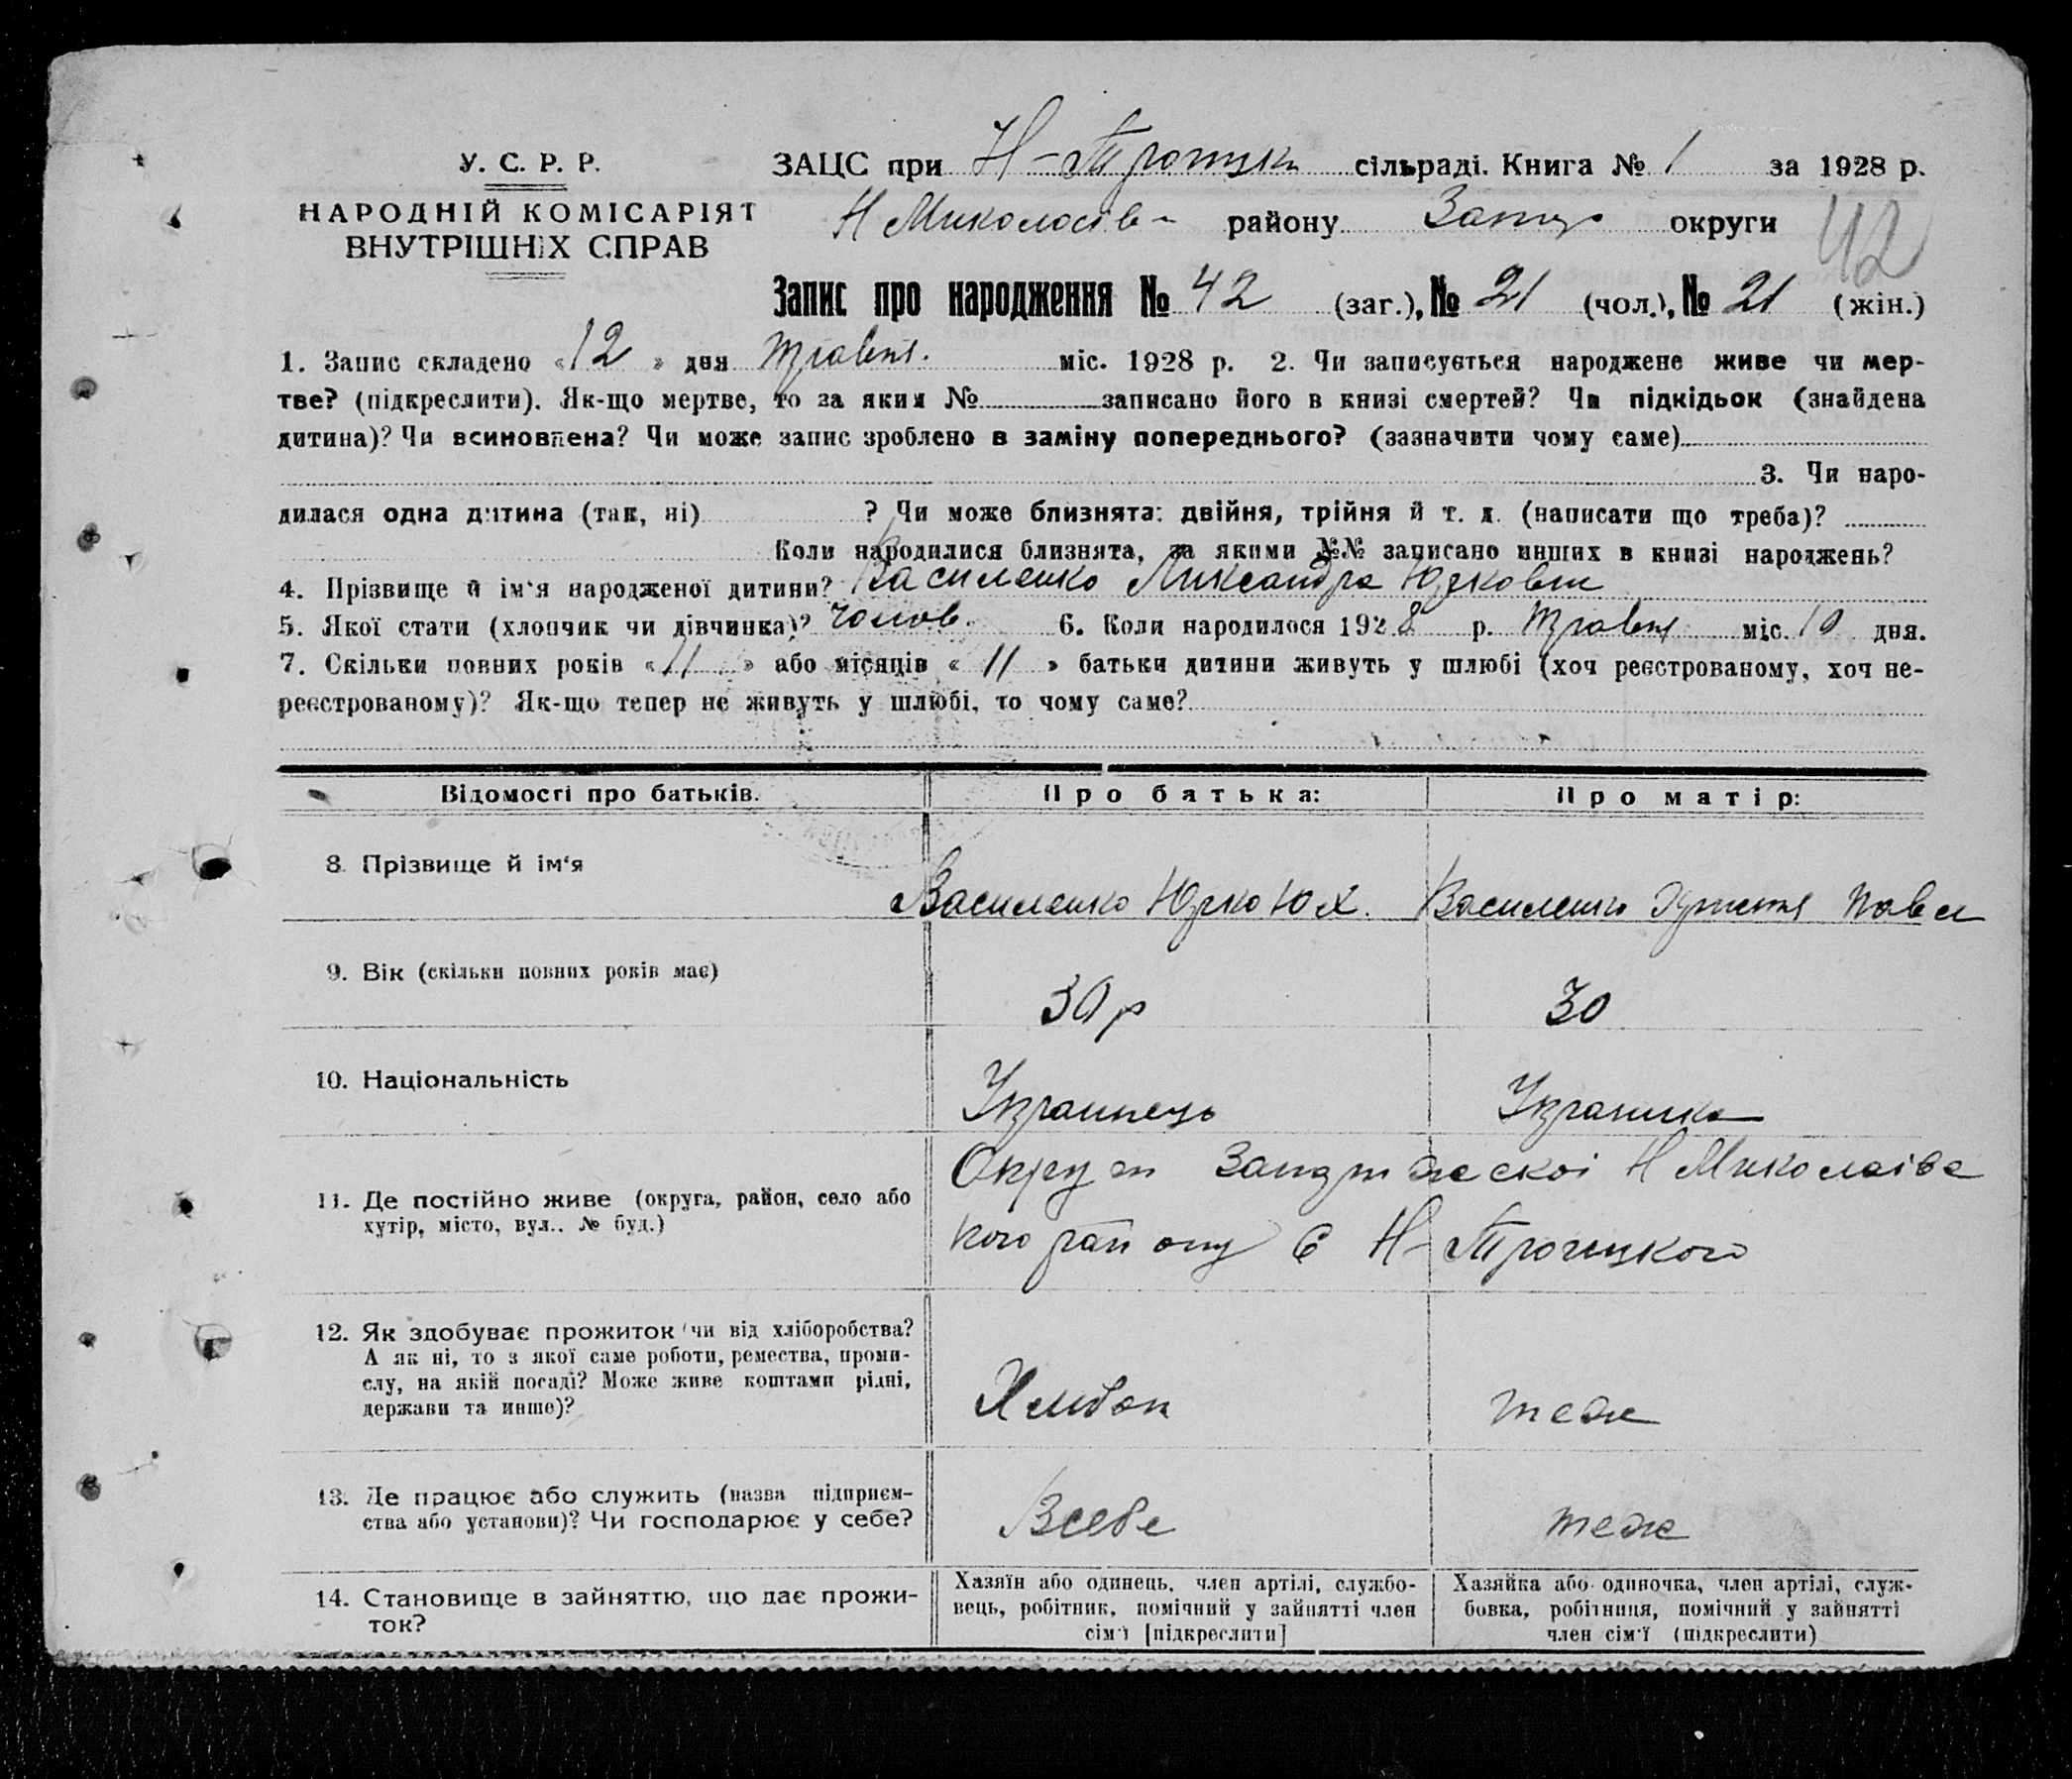 У. С. Р. Р.
НАРОДНІЙ КОМІСАРІЯТ
ВНУТРІШНІХ СПРАВ
ЗАЦС при Н-Троицьк сільраді. Книга № 1 за 1928 р.
Н Миколаів- району Запор округи
42
Запис про народження № 42 (заг.), № 21 (чол.), № 21 (жін.)
1. Запис складено «12» дня травня. міс. 1928 р. 2. Чи записується народжене живе чи мер-
тве? (підкреслити). Як-що мертве, то за яким № записано його в книзі смертей? Чи підкідьок (знайдена
дитина)? Чи всиновлена? Чи може запис зроблено в заміну попереднього? (зазначити чому саме)
3. Чи наро-
дилася одна дитина (так, ні) ? Чи може близнята: двійня, трійня й т. д. (написати що треба)?
Коли народилися близнята, за якими №№ записано инших в книзі народжень?
4. Прізвище й ім'я народженої дитини? Василенко Юркович
5. Якої стати (хлопчик чи дівчинка)? чолов. 6. Коли народилося 1928 р. травня міс. 10 дня.
7. Скільки повних років «11» або місяців «11» батьки дитини живуть у шлюбі (хоч реєстрованому, хоч не-
реєстрованому)? Як-що тепер не живуть у шлюбі, то чому саме?
Відомості про батьків. Про батька: Про матір:
8. Прізвище й ім'я Василенко Юрко Юх. Василенко Павл
9. Вік (скільки повних років має) 30 р 30
10. Національність Украинець Украинка
11. Де постійно живе (округа, район, село або
хутір, місто, вул., № буд.)
Округи Н Миколаівс
кого району С Н-Троицкого
12. Як здобуває прожиток чи від хліборобства?
А як ні, то з якої саме роботи, ремества, проми-
слу, на якій посаді? Може живе коштами рідні,
держави та инше)?
Хлибоп теж
13. Де працює або служить (назва підприєм-
ства або установи)? Чи господарює у себе?
Всебе теж
14. Становище в зайняттю, що дає прожи-
ток?
Хазяїн або одинець, член артілі, службо-
вець, робітник, помічний у зайнятті член
сім'ї [підкреслити]
Хазяйка або одиночка, член артілі, служ-
бовка, робітниця, помічний у зайнятті
член сім'ї (підкреслити)